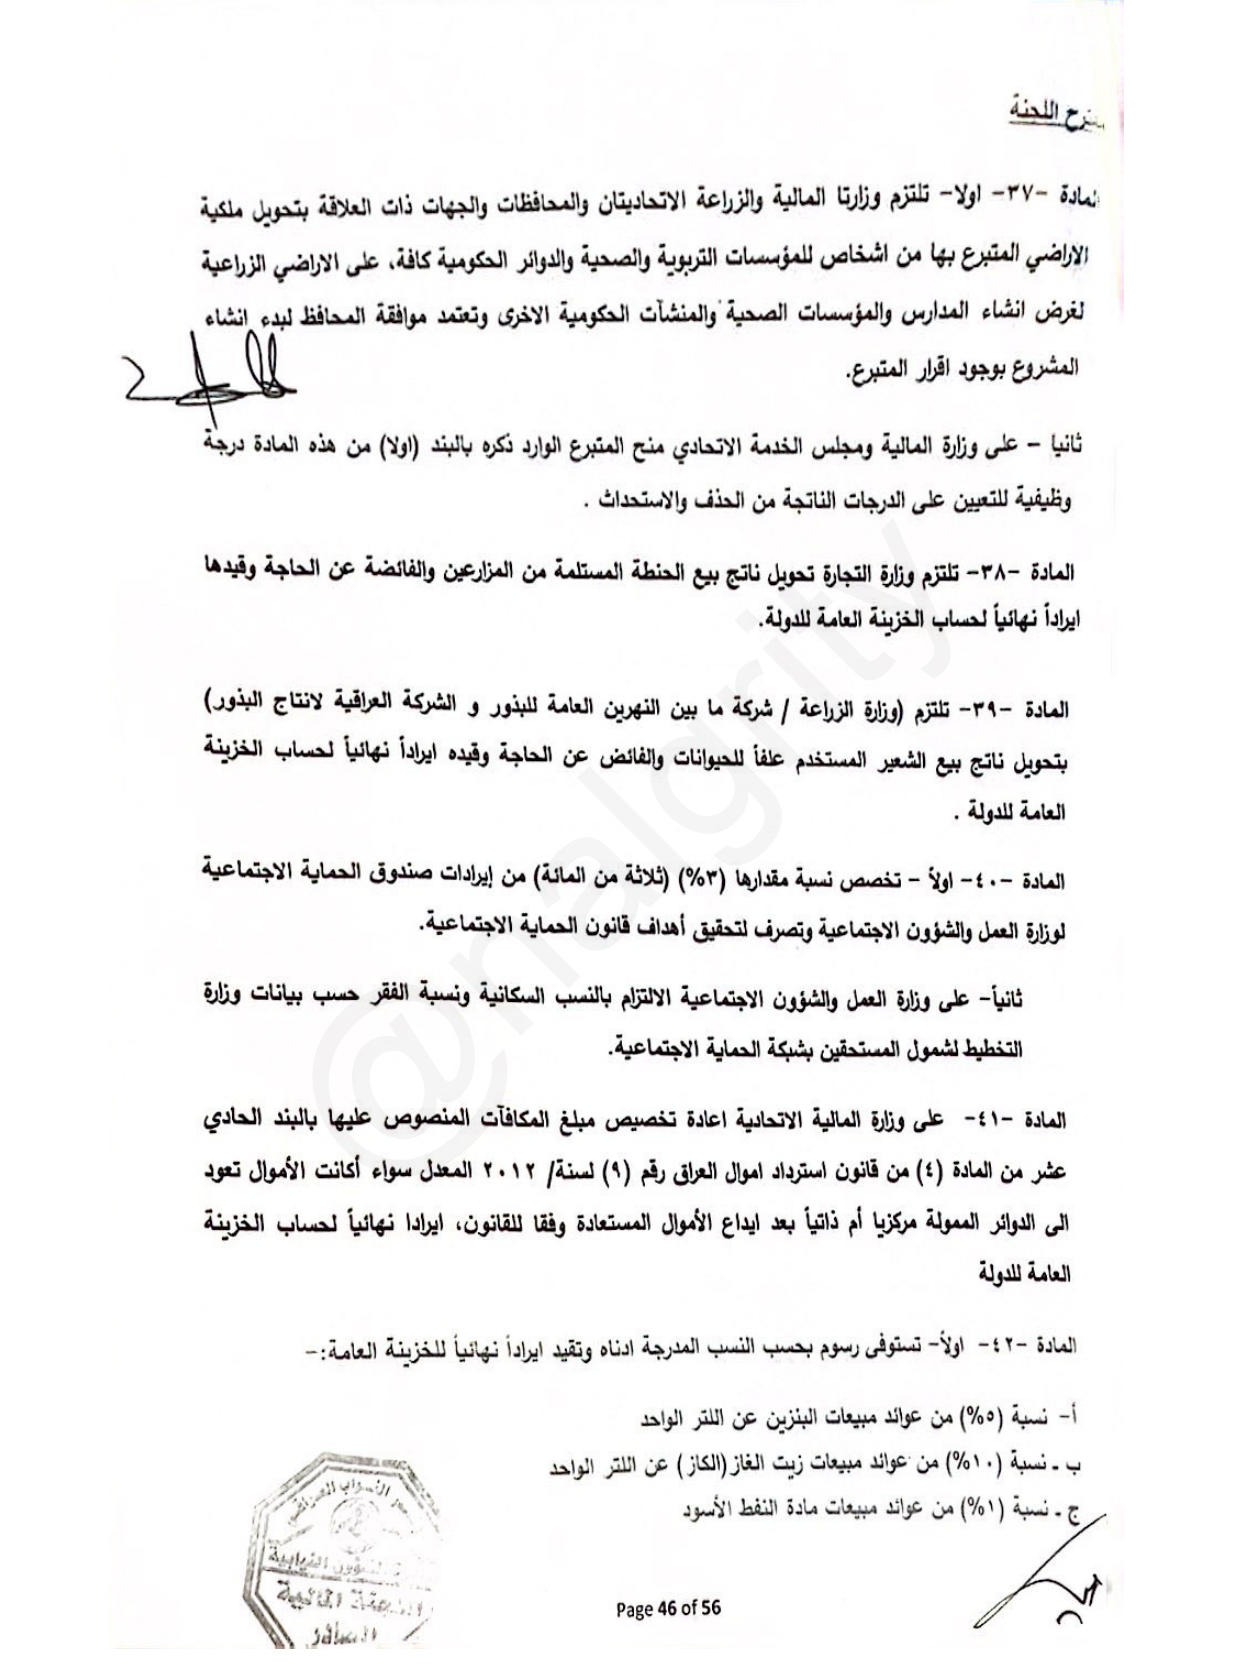 مقترح اللجنة
المادة -٣٧- اولا- تلتزم وزارتا المالية والزراعة الاتحاديتان والمحافظات والجهات ذات العلاقة بتحويل ملكية
الاراضي المتبرع بها من اشخاص للمؤسسات التربوية والصحية والدوائر الحكومية كافة، على الاراضي الزراعية
لغرض انشاء المدارس والمؤسسات الصحية والمنشآت الحكومية الاخرى وتعتمد موافقة المحافظ لبدء انشاء
المشروع بوجود اقرار المتبرع.
ثانيا - على وزارة المالية ومجلس الخدمة الاتحادي منح المتبرع الوارد ذكره بالبند (اولا) من هذه المادة درجة
وظيفية للتعيين على الدرجات الناتجة من الحذف والاستحداث .
المادة -٣٨- تلتزم وزارة التجارة تحويل ناتج بيع الحنطة المستلمة من المزارعين والفائضة عن الحاجة وقيدها
ايراداً نهائياً لحساب الخزينة العامة للدولة.
المادة -٣٩- تلتزم (وزارة الزراعة / شركة ما بين النهرين العامة للبذور و الشركة العراقية لانتاج البذور)
بتحويل ناتج بيع الشعير المستخدم علفاً للحيوانات والفائض عن الحاجة وقيده ايراداً نهائياً لحساب الخزينة
العامة للدولة .
المادة -٤٠- اولاً - تخصص نسبة مقدارها (٣%) (ثلاثة من المائة) من إيرادات صندوق الحماية الاجتماعية
لوزارة العمل والشؤون الاجتماعية وتصرف لتحقيق أهداف قانون الحماية الاجتماعية.
ثانياً- على وزارة العمل والشؤون الاجتماعية الالتزام بالنسب السكانية ونسبة الفقر حسب بيانات وزارة
التخطيط لشمول المستحقين بشبكة الحماية الاجتماعية.
المادة -٤١- على وزارة المالية الاتحادية اعادة تخصيص مبلغ المكافآت المنصوص عليها بالبند الحادي
عشر من المادة (٤) من قانون استرداد اموال العراق رقم (٩) لسنة/ ٢٠١٢ المعدل سواء أكانت الأموال تعود
الى الدوائر الممولة مركزيا أم ذاتياً بعد ايداع الأموال المستعادة وفقا للقانون، ايرادا نهائياً لحساب الخزينة
العامة للدولة
المادة -٤٢- اولاً- تستوفى رسوم بحسب النسب المدرجة ادناه وتقيد ايراداً نهائياً للخزينة العامة:-
أ- نسبة (٥%) من عوائد مبيعات البنزين عن اللتر الواحد
ب ـ نسبة (١٠%) من عوائد مبيعات زيت الغاز(الكاز) عن اللتر الواحد
ج ـ نسبة (١%) من عوائد مبيعات مادة النفط الأسود
النواب العراقي
النيابية
اللجنة المالية
الصادر
Page 46 of 56
@nalgrity